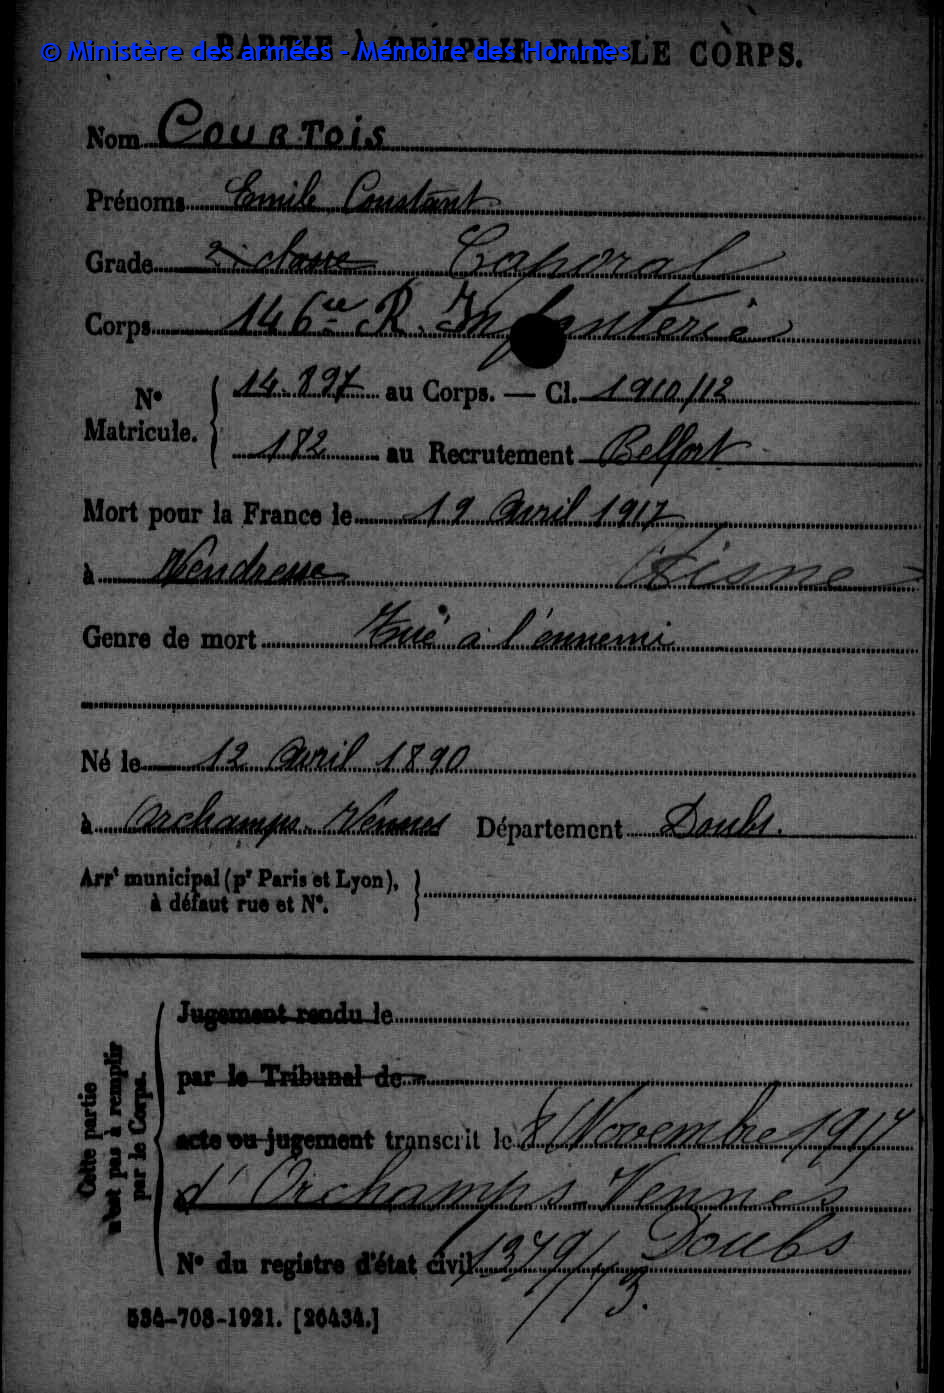 PARTIE À REMPLIR PAR LE CORPS.
© Ministère des armées - Mémoire des Hommes
Nom COURTOIS
Prénoms Emile Constant
Grade 2e classe Caporal
Corps 146ee R. Infanterie
No Matricule. 14.897 au Corps. — Cl. 1910/12
182 au Recrutement Belfort
Mort pour la France le 19 Avril 1917
à Vendresse Aisne
Genre de mort Tué à l'ennemi
Né le 12 Avril 1890
à Orchamps-Vennes Département Doubs.
Arrt municipal (pr Paris et Lyon),
à défaut rue et No.
Cette partie
n'est pas à remplir
par le Corps.
Jugement rendu le
par le Tribunal de
acte ou jugement transcrit le 8 Novembre 1917
d'Orchamps-Vennes
Doubs
No du registre d'état civil 1379/73.
534-708-1921. [26434.]